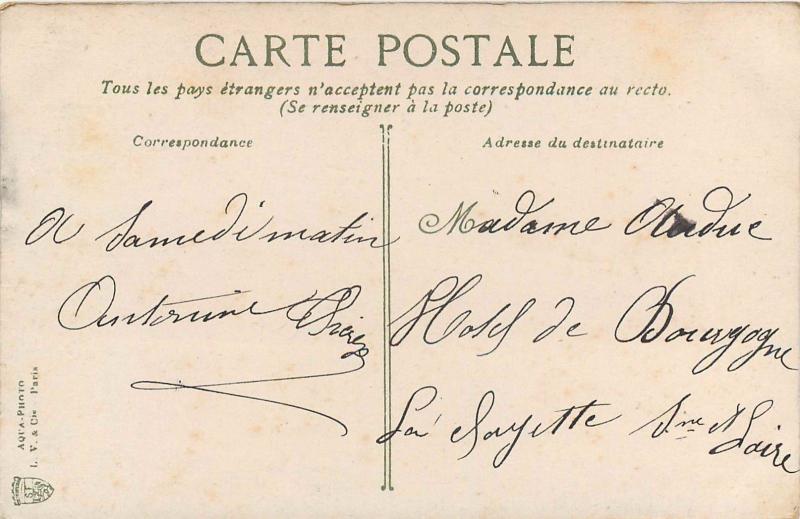 CARTE POSTALE
Tous les pays étrangers n'acceptent pas la correspondance au recto.
(Se renseigner à la poste)
Correspondance
A Samedi matin
Antonine
Adresse du destinataire
Madame
Hotel de Bourgogne
La Clayette Sne & Loire
AQUA-PHOTO
L. V. & Cie Paris